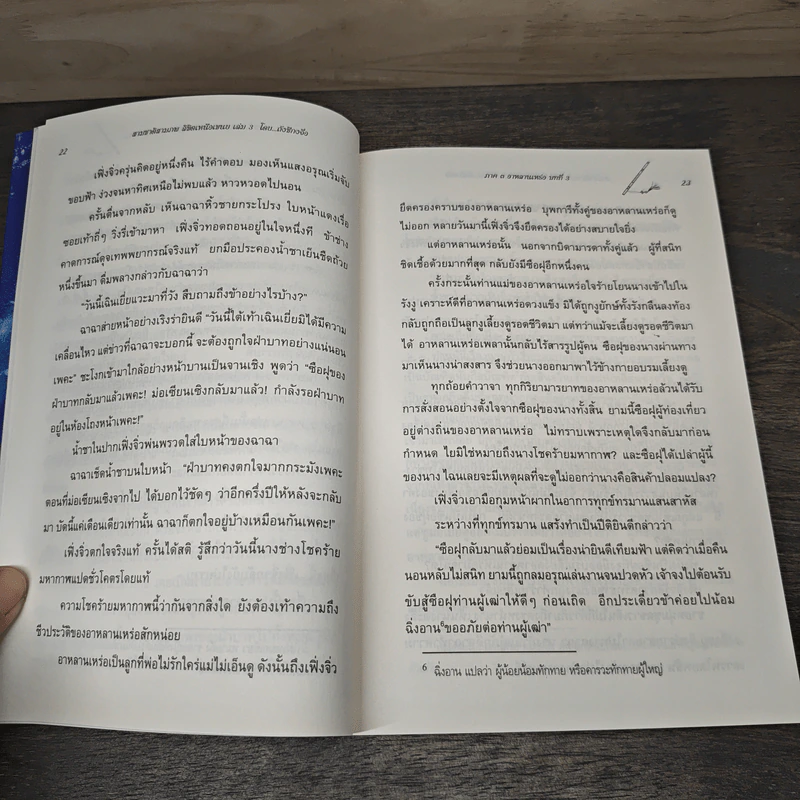 22
สามชาติสามภพ ลิขิตเหนือเขนย เล่ม 3 โดย...ถังชีกงจื่อ
เฟิ่งจิ่วครุ่นคิดอยู่หนึ่งคืน ไร้คำตอบ มองเห็นแสงอรุณเริ่มจับ
ขอบฟ้า ง่วงจนหาทิศเหนือไม่พบแล้ว หาวหวอดไปนอน
ครั้นตื่นจากหลับ เห็นฉาฉาหิ้วชายกระโปรง ใบหน้าแดงเรื่อ
ซอยเท้าถี่ๆ วิ่งรี่เข้ามาหา เฟิ่งจิ่วทอดถอนอยู่ในใจหนึ่งที ข้าช่าง
คาดการณ์ดุจเทพพยากรณ์จริงแท้ ยกมือประคองน้ำชาเย็นชืดถ้วย
หนึ่งขึ้นมา ดื่มพลางกล่าวกับฉาฉาว่า
“วันนี้เฉินเยี่ยแวะมาที่วัง สืบถามถึงข้าอย่างไรบ้าง?”
ฉาฉาส่ายหน้าอย่างเริงร่ายินดี “วันนี้ใต้เท้าเฉินเยี่ยมิได้มีความ
เคลื่อนไหว แต่ข่าวที่ฉาฉาจะบอกนี้ จะต้องถูกใจฝ่าบาทอย่างแน่นอน
เพคะ” ชะโงกเข้ามาใกล้อย่างหน้าบานเป็นจานเชิง พูดว่า “ซือฝุของ
ฝ่าบาทกลับมาแล้วเพคะ! ม่อเซียนเซิงกลับมาแล้ว! กำลังรอฝ่าบาท
อยู่ในห้องโถงหน้าเพคะ!”
น้ำชาในปากเฟิ่งจิ่วพ่นพรวดใส่ใบหน้าของฉาฉา
ฉาฉาเช็ดน้ำชาบนใบหน้า “ฝ่าบาทคงตกใจมากกระมังเพคะ
ตอนที่ม่อเซียนเซิงจากไป ได้บอกไว้ชัดๆ ว่าอีกครึ่งปีให้หลังจะกลับ
มา บัดนี้แค่เดือนเดียวเท่านั้น ฉาฉาก็ตกใจอยู่บ้างเหมือนกันเพคะ!”
เฟิ่งจิ่วตกใจจริงแท้ ครั้นได้สติ รู้สึกว่าวันนี้นางช่างโชคร้าย
มหากาฬแปดชั่วโคตรโดยแท้
ความโชคร้ายมหากาฬนี้ว่ากันจากสิ่งใด ยังต้องเท้าความถึง
ชีวประวัติของอาหลานเหร่อสักหน่อย
อาหลานเหร่อเป็นลูกที่พ่อไม่รักใคร่แม่ไม่เอ็นดู ดังนั้นถึงเฟิ่งจิ่ว
ภาค ๕ อาหลานเหร่อ บทที่ 3
23
ยึดครองคราบของอาหลานเหร่อ บุพการีทั้งคู่ของอาหลานเหร่อก็ดู
ไม่ออก หลายวันมานี้เฟิ่งจิ่วจึงยึดครองได้อย่างสบายใจยิ่ง
แต่อาหลานเหร่อนั้น นอกจากบิดามารดาทั้งคู่แล้ว ผู้ที่สนิท
ชิดเชื้อด้วยมากที่สุด กลับยังมีซือฝุอีกหนึ่งคน
ครั้งกระนั้นท่านแม่ของอาหลานเหร่อใจร้ายโยนนางเข้าไปใน
รังงู เคราะห์ดีที่อาหลานเหร่อดวงแข็ง มิได้ถูกงูยักษ์ทั้งรังกลืนลงท้อง
กลับถูกถือเป็นลูกงูเลี้ยงดูรอดชีวิตมา แต่ทว่าแม้จะเลี้ยงดูรอดชีวิตมา
ได้ อาหลานเหร่อเพลานั้นกลับไร้สารรูปผู้คน ซือฝุของนางผ่านทาง
มาเห็นนางน่าสงสาร จึงช่วยนางออกมาพาไว้ข้างกายอบรมเลี้ยงดู
ทุกถ้อยคำวาจา ทุกกิริยามารยาทของอาหลานเหร่อล้วนได้รับ
การสั่งสอนอย่างตั้งใจจากซือฝุของนางทั้งสิ้น ยามนี้ซือฝุผู้ท่องเที่ยว
อยู่ต่างถิ่นของอาหลานเหร่อ ไม่ทราบเพราะเหตุใดจึงกลับมาก่อน
กำหนด ไยมิใช่หมายถึงนางโชคร้ายมหากาฬ? และซือฝุได้เปล่าผู้นี้
ของนาง ไฉนเลยจะมีเหตุผลที่จะดูไม่ออกว่านางคือสินค้าปลอมแปลง?
เฟิ่งจิ่วเอามือกุมหน้าผากในอาการทุกข์ทรมานแสนสาหัส
ระหว่างที่ทุกข์ทรมาน แสร้งทำเป็นปีติยินดีกล่าวว่า
“ซือฝุกลับมาแล้วย่อมเป็นเรื่องน่ายินดีเทียมฟ้า แต่คิดว่าเมื่อคืน
นอนหลับไม่สนิท ยามนี้ถูกลมอรุณเล่นงานจนปวดหัว เจ้าจงไปต้อนรับ
ขับสู้ซือฝุท่านผู้เฒ่าให้ดีๆ ก่อนเถิด อีกประเดี๋ยวข้าค่อยไปน้อม
ฉิ่งอาน⁶ขออภัยต่อท่านผู้เฒ่า”
6 ฉิ่งอาน แปลว่า ผู้น้อยน้อมทักทาย หรือคารวะทักทายผู้ใหญ่